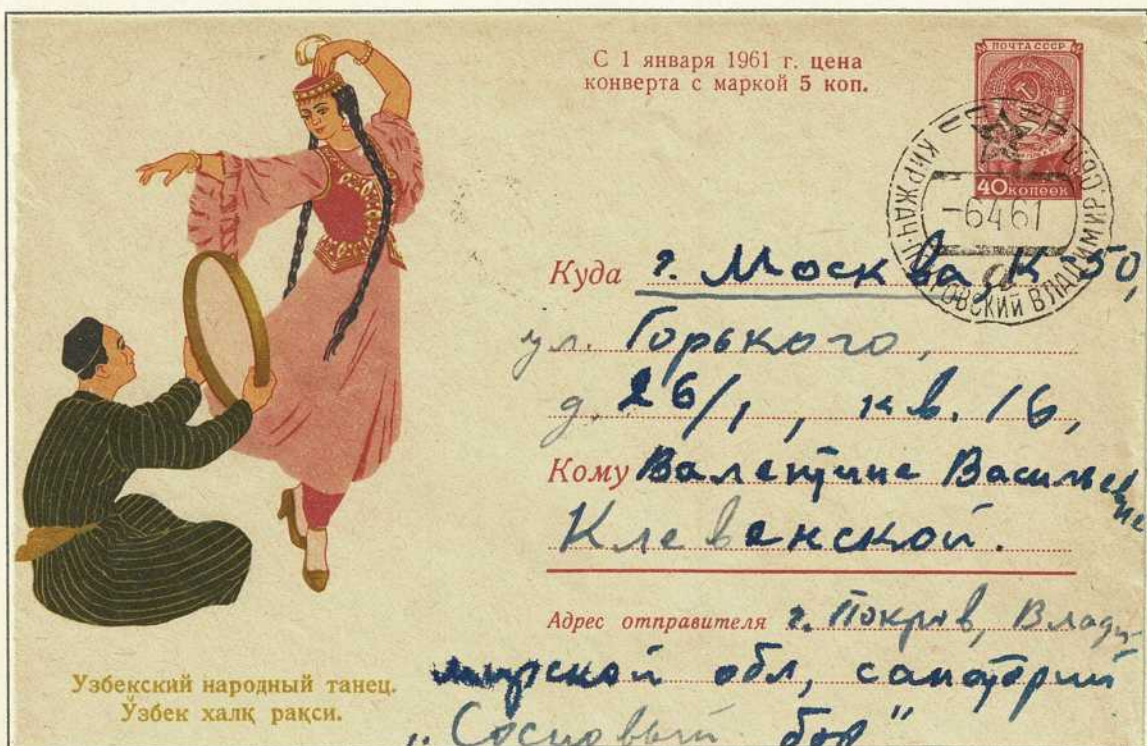 С 1 января 1961 г. цена
конверта с маркой 5 коп.
ПОЧТА СССР
40 КОПЕЕК
-6461
КИРЖАЧ-П ВЛАДИМИР.
Куда г. Москва, К-50,
ул. Горького,
д. 26/1, кв. 16,
Кому Валентине Васильевне
Клевенской.
Адрес отправителя г. Покров, Влади-
мирской обл, санаторий
„Сосновый бор"
Узбекский народный танец.
Ўзбек халқ рақси.